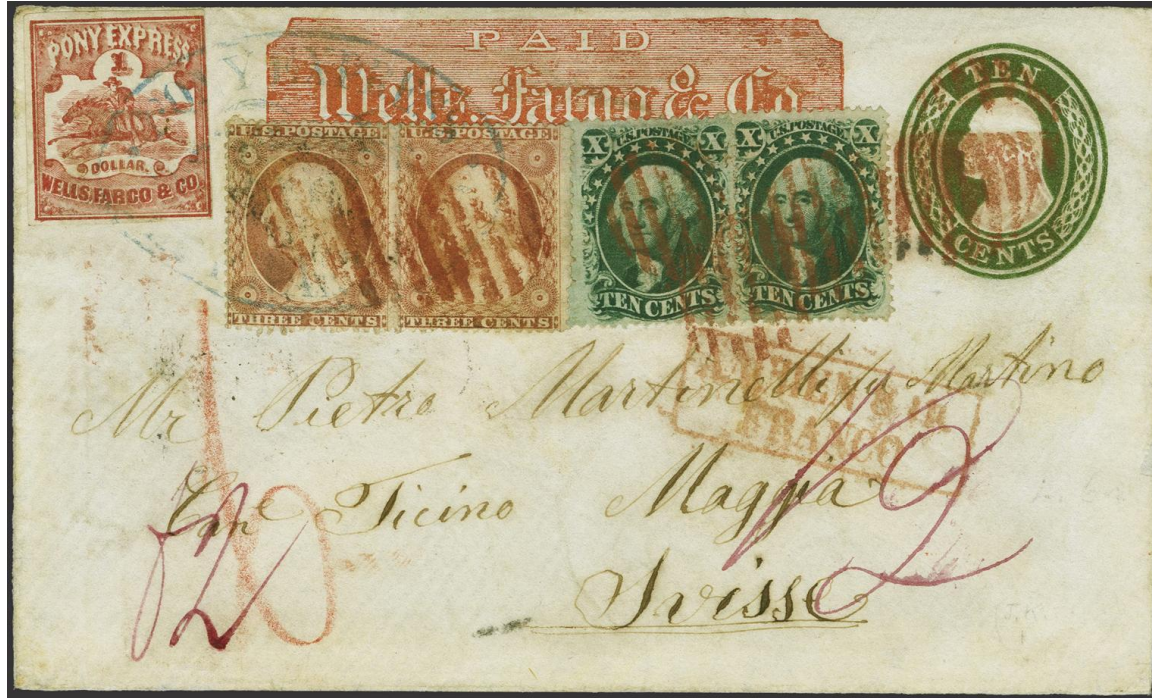 PONY EXPRESS
1
DOLLAR.
WELLS, FARGO & CO.
PAID
Wells, Fargo & Co.
U.S. POSTAGE
THREE CENTS
U.S. POSTAGE
THREE CENTS
X U.S. POSTAGE X
TEN CENTS
X U.S. POSTAGE X
TEN CENTS
TEN
CENTS
FRANCO
Mr Pietro Martinelli fu Martino
Maggia
Ticino
Svisse
12
10